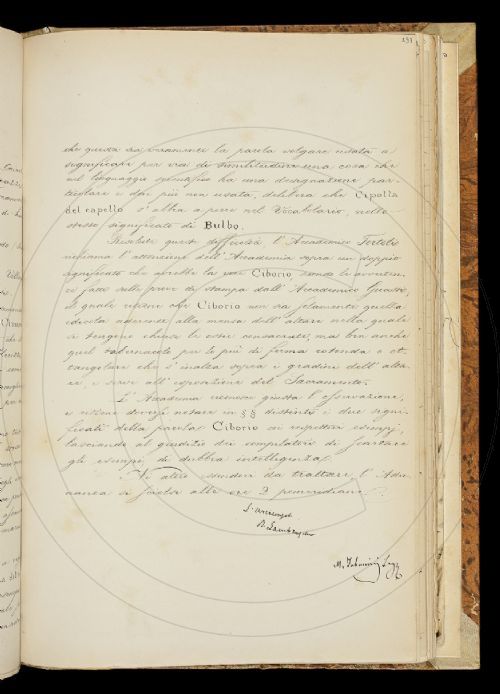 191
che questa sia veramente la parola volgare usata a
significare per via di similitudine una cosa che
nel linguaggio scientifico ha una designazione par-
ticolare e dai più non usata, delibera che Cipolla
del capello s'abbia a porre nel Vocabolario, nello
stesso significato di Bulbo.
Risolute queste difficoltà l'Accademico Tortoli
richiama l'attenzione dell'Accademia sopra un doppio
significato che avrebbe la voce Ciborio secondo le avverten-
ze fatte nelle prove di stampa dall'Accademico Guasti,
il quale ritiene che Ciborio non sia solamente quella
edicola aderente alla mensa dell'altare nella quale
si tengono chiuse le ostie consacrate, ma bensì anche
quel tabernacolo per lo più di forma rotonda o ot-
tangolare che s'inalza sopra i gradini dell'alta-
re, e serve all'esposizione del Sacramento.
L'Accademia riconosce giusta l'osservazione,
e ritiene doversi notare in §§ distinti i due signi-
ficati della parola Ciborio coi rispettivi esempj,
lasciando al giudizio dei compilatori di scartare
gli esempj di dubbia intelligenza.
Nè altro essendovi da trattare, l'Adu-
nanza si sciolse alle ore 3 pomeridiane.
L'Arciconsolo